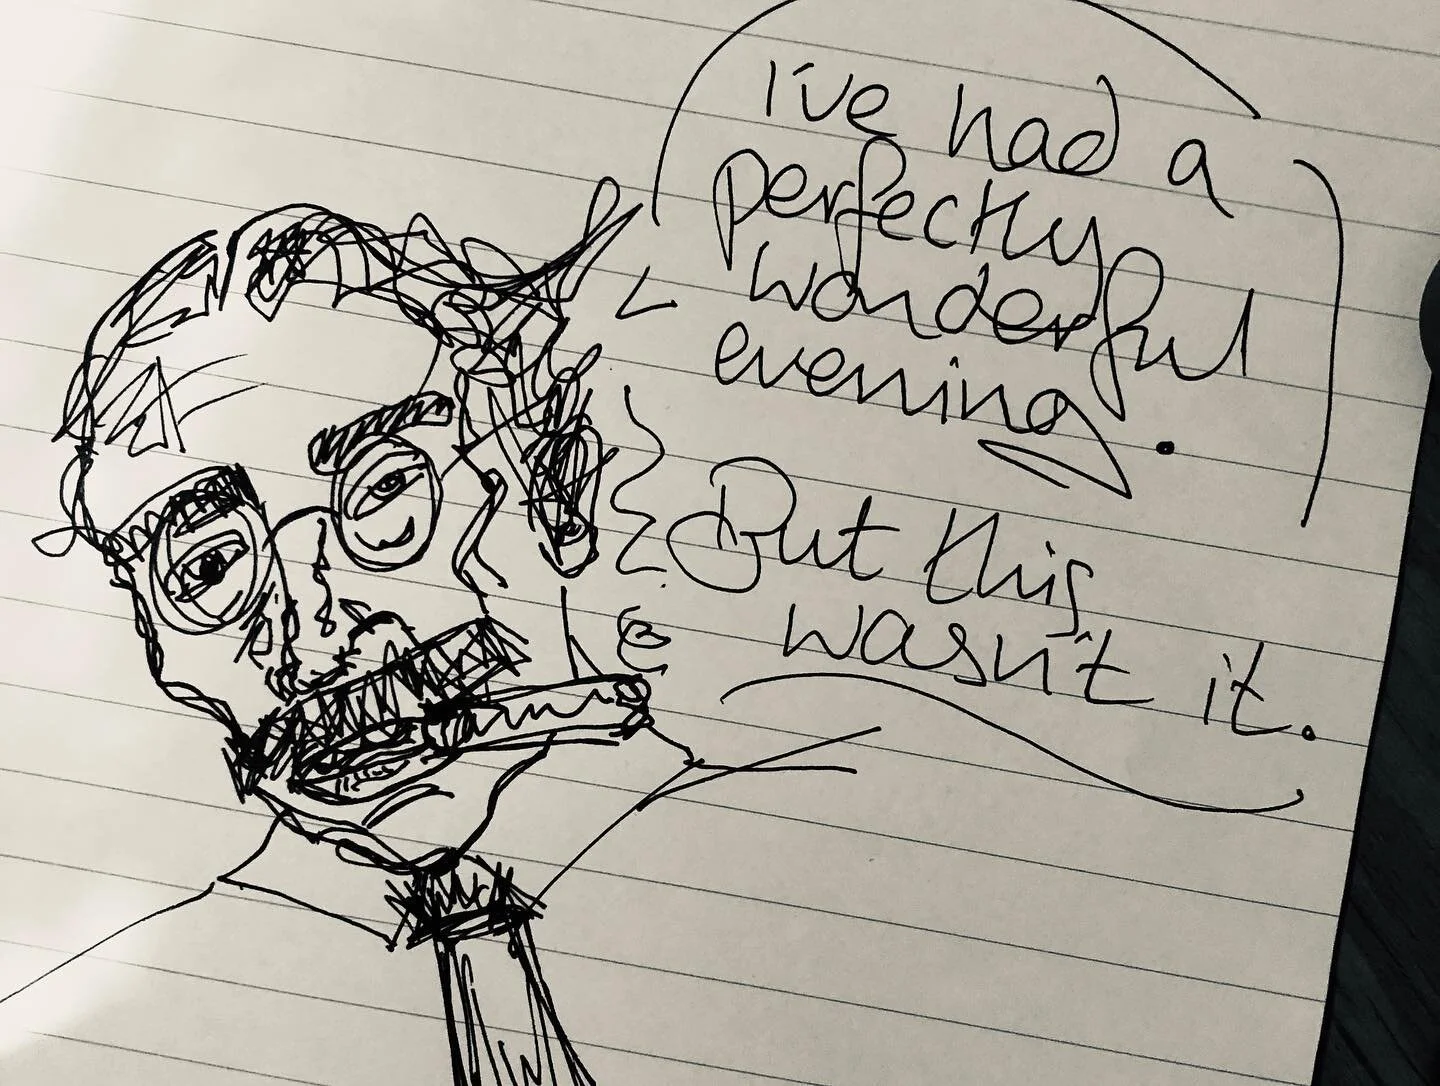 I've had a
perfectly
wonderful
evening.
But this
wasn't it.